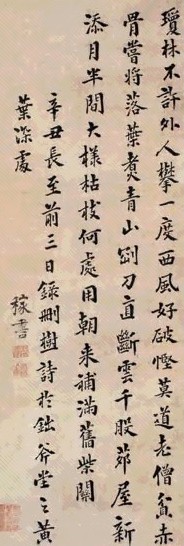 瓊林不許外人攀一度西風好破慳莫道老僧貧赤
骨嘗將落葉煑青山劊刀直斷雲千股茆屋新
添月半間大樣枯枝何處用朝來補滿舊柴關
辛丑長至前三日錄刪樹詩於鈯斧堂之黃
葉深處
稼書